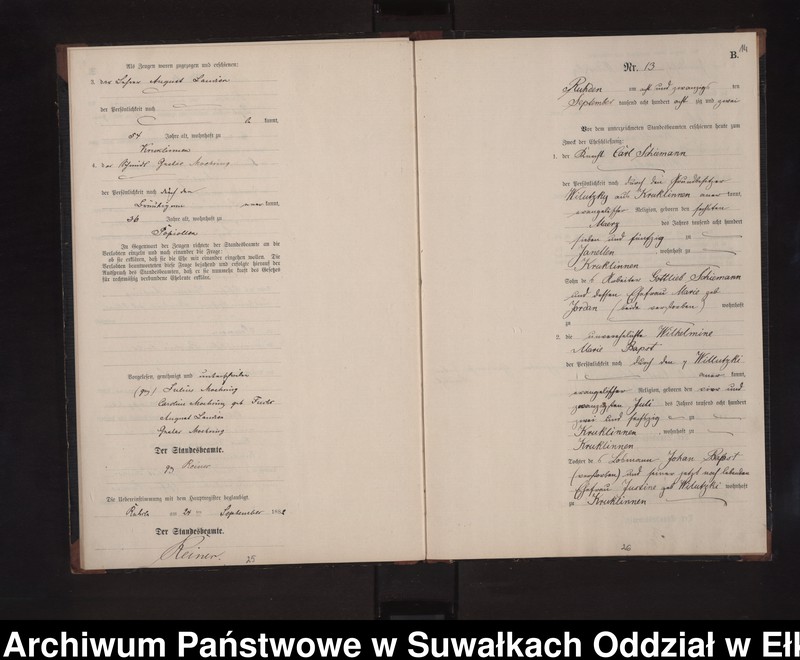 Als Zeugen waren zugezogen und erschienen:
3. der Lehrer August
der Persönlichkeit nach
kannt,
34 Jahre alt, wohnhaft zu
Kruklinnen
4. der Schmidt Gustav
der Persönlichkeit nach durch den
Bräutigam aner kannt,
36 Jahre alt, wohnhaft zu
In Gegenwart der Zeugen richtete der Standesbeamte an die
Verlobten einzeln und nach einander die Frage:
ob sie erklären, daß sie die Ehe mit einander eingehen wollen. Die
Verlobten beantworteten diese Frage bejahend und erfolgte hierauf der
Ausspruch des Standesbeamten, daß er sie nunmehr kraft des Gesetzes
für rechtmäßig verbundene Eheleute erkläre.
Vorgelesen, genehmigt und unterschrieben
(gz) Julius
Caroline geb
August
Gustav
Der Standesbeamte.
gz Reiner
Die Uebereinstimmung mit dem Hauptregister beglaubigt.
am 24 ten September 1882
Der Standesbeamte.
Reiner.
25
B.
Nr. 13
am acht und zwanzigsten
September tausend acht hundert acht zig und zwei
Vor dem unterzeichneten Standesbeamten erschienen heute zum
Zweck der Eheschließung:
1. der Knecht Carl Schiemann
der Persönlichkeit nach durch den Grundbesitzer
Wilutzky aus Kruklinnen aner kannt,
evangelischer Religion, geboren den sechsten
Maerz des Jahres tausend acht hundert
sieben und fünfzig zu
, wohnhaft zu
Kruklinnen
Sohn des Arbeiter Gottlieb Schiemann
und dessen Ehefrau Marie geb
Jordan (beide verstorben) wohnhaft
zu
2. die unverehelichte Wilhelmine
Marie
der Persönlichkeit nach durch den p Willutzki
aner kannt,
evangelischer Religion, geboren den vier und
zwanzigsten Juli des Jahres tausend acht hundert
zwei und sechszig zu
Kruklinnen , wohnhaft zu
Kruklinnen
Tochter des Johan
(verstorben) und seiner jetzt noch lebenden
Ehefrau Justine geb Wilutzki wohnhaft
zu Kruklinnen
26
Archiwum Państwowe w Suwałkach Oddział w Ełk